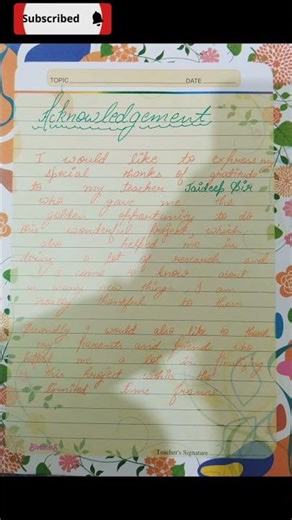 Subscribed
TOPIC DATE
Acknowledgement
I would like to express my
special thanks of gratitude
to my teacher Jaideep Sir
who gave me the
golden opportunity to do
this wonderful project, which
also helped me in
doing a lot of research and
I come to know about
so many new things. I am
really thankful to them
Secondly I would also like to thank
my parents and friend who
helped me a lot in finalizing
this Project within the
limited time frame
Teacher's Signature